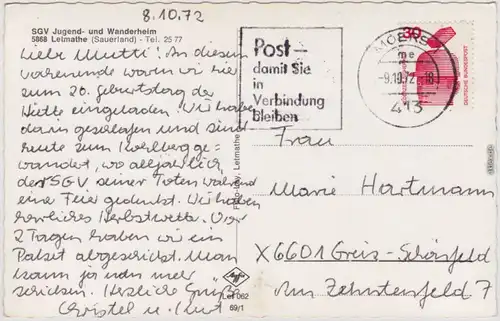 8.10.72
SGV Jugend- und Wanderheim
5868 Letmathe (Sauerland) - Tel. 25 77
Liebe Mutti! An diesem
waren wir hier
zum 20. Geburtstag der
Hütte eingeladen. Wir haben
darin geschlafen und sind
heute zum Kohlberg ge-
wandert, wo alljährlich
der SGV seiner Toten während
eine Feier gedenkt. Wir haben
herrliches Herbstwetter. Vor
2 Tagen haben wir ein
Paket abgeschickt. Man
kann ja nun mer
schicken. Herzliche Grüße
Christel u. Kurt
Post-
damit Sie
in
Verbindung
bleiben
MOERS
me
-9.10.72-18
413
30
DEUTSCHE BUNDESPOST
Frau
Marie Hartmann
X6601 Greiz-Schönfeld
Am Zehntenfeld 7
Letmathe
Agfa
Let 062
69/1